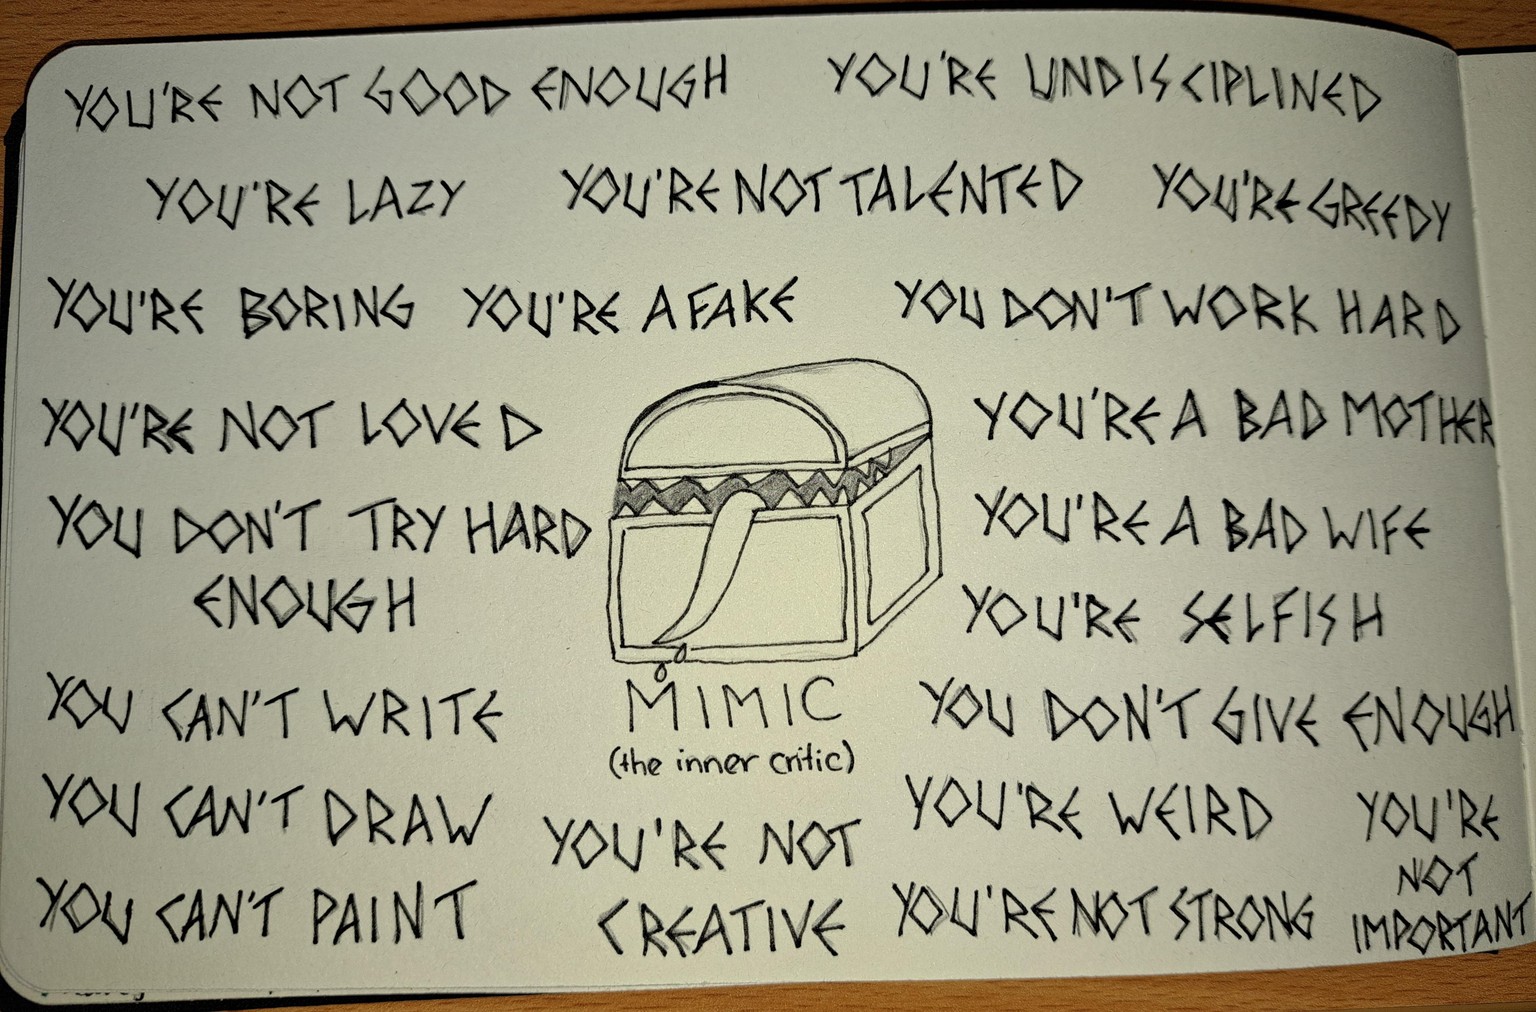 YOU'RE NOT GOOD ENOUGH
YOU'RE UNDISCIPLINED
YOU'RE LAZY
YOU'RE NOT TALENTED
YOU'RE GREEDY
YOU'RE BORING
YOU'RE A FAKE
YOU DON'T WORK HARD
YOU'RE NOT LOVED
YOU'RE A BAD MOTHER
YOU DON'T TRY HARD
ENOUGH
YOU'RE A BAD WIFE
YOU'RE SELFISH
MIMIC
(the inner critic)
YOU CAN'T WRITE
YOU DON'T GIVE ENOUGH
YOU CAN'T DRAW
YOU'RE NOT
CREATIVE
YOU'RE WEIRD
YOU'RE
NOT
IMPORTANT
YOU CAN'T PAINT
YOU'RE NOT STRONG